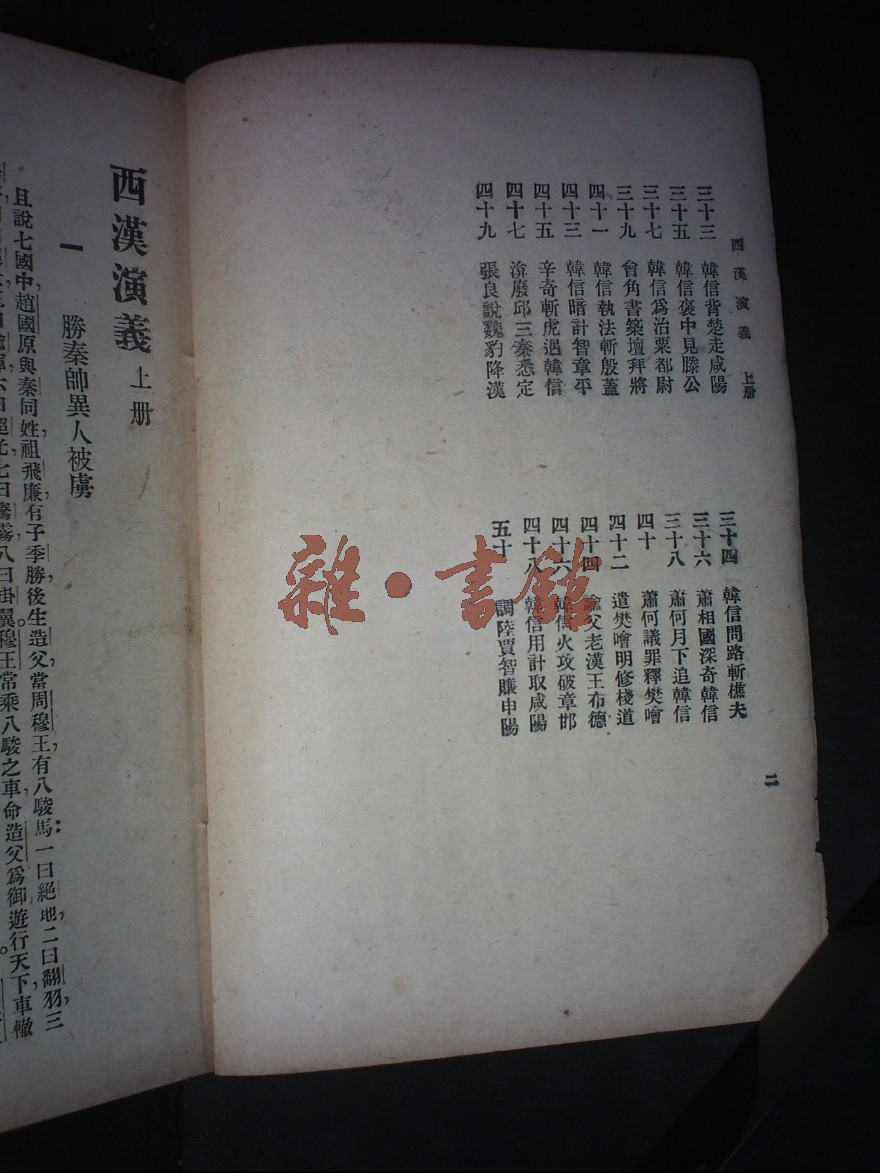 西漢演義 上册
三十三 韓信背楚走咸陽
三十四 韓信問路斬樵夫
三十五 韓信褒中見滕公
三十六 蕭相國深奇韓信
三十七 韓信爲治粟都尉
三十八 蕭何月下追韓信
三十九 曾角書築壇拜將
四十 蕭何議罪釋樊噲
四十一 韓信執法斬殷蓋
四十二 遣樊噲明修棧道
四十三 韓信暗計智章平
四十四 諭父老漢王布德
四十五 辛奇斬虎遇韓信
四十六 韓信火攻破章邯
四十七 渰廢邱三秦悉定
四十八 韓信用計取咸陽
四十九 張良說魏豹降漢
五十 調陸賈智賺申陽
二
雜·書館
西漢演義 上册
一 勝秦帥異人被虜
且說七國中趙國原與秦同姓祖飛廉有子季勝後生造父當周穆王有八駿馬：一曰絕地，二曰翻羽，三
八曰掛翼。穆王常乘八駿之車，命造父爲御，遊行天下，車轍